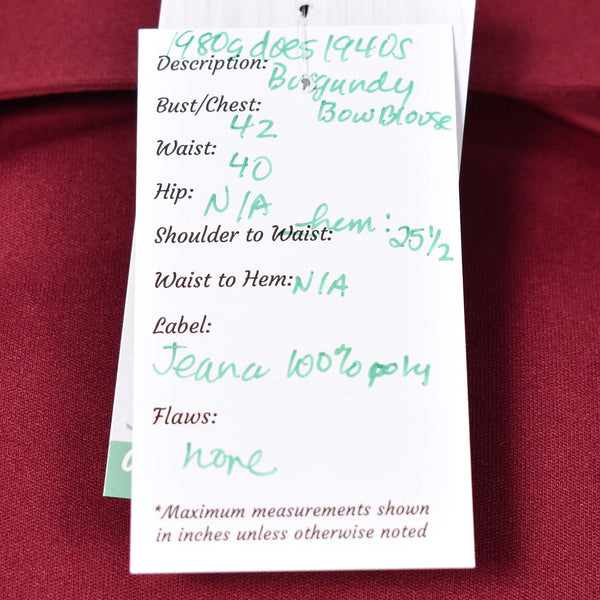 1980s does 1940s
Description: Burgundy
Bust/Chest: Bow Blouse
42
Waist:
40
Hip:
N/A
Shoulder to Waist: hem: 25 1/2
Waist to Hem: N/A
Label:
Jeana 100% poly
Flaws:
none
*Maximum measurements shown
in inches unless otherwise noted